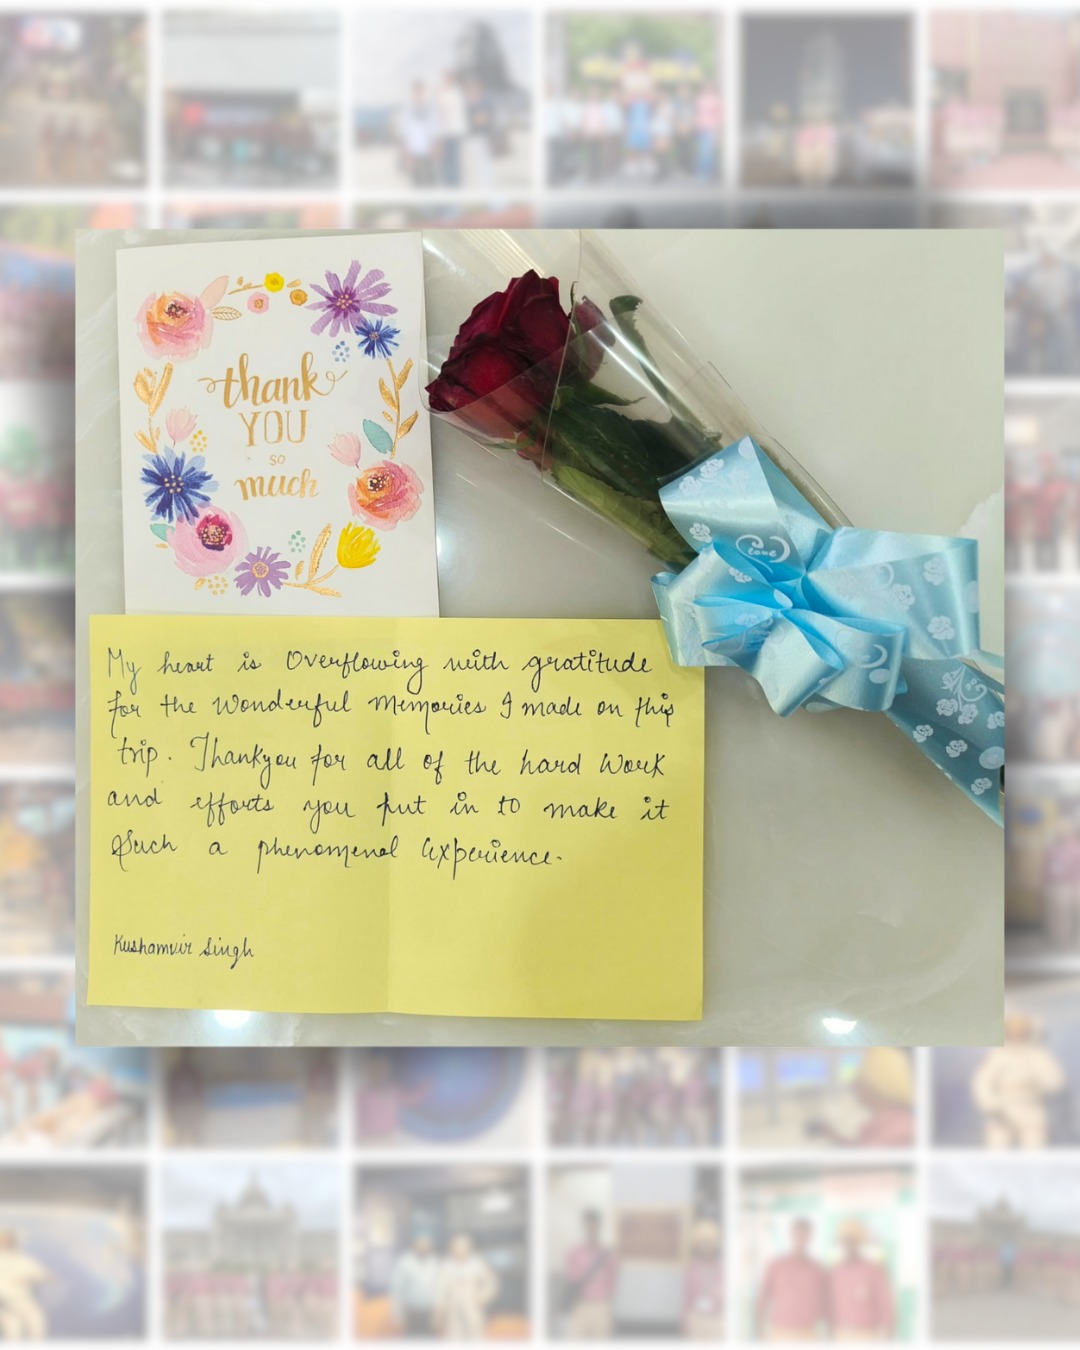 thank
YOU
so
much
Love
My heart is Overflowing with gratitude
for the wonderful Memories I made on this
trip. Thankyou for all of the hard Work
and efforts you put in to make it
Such a phenomenal experience.
Kushamvir Singh